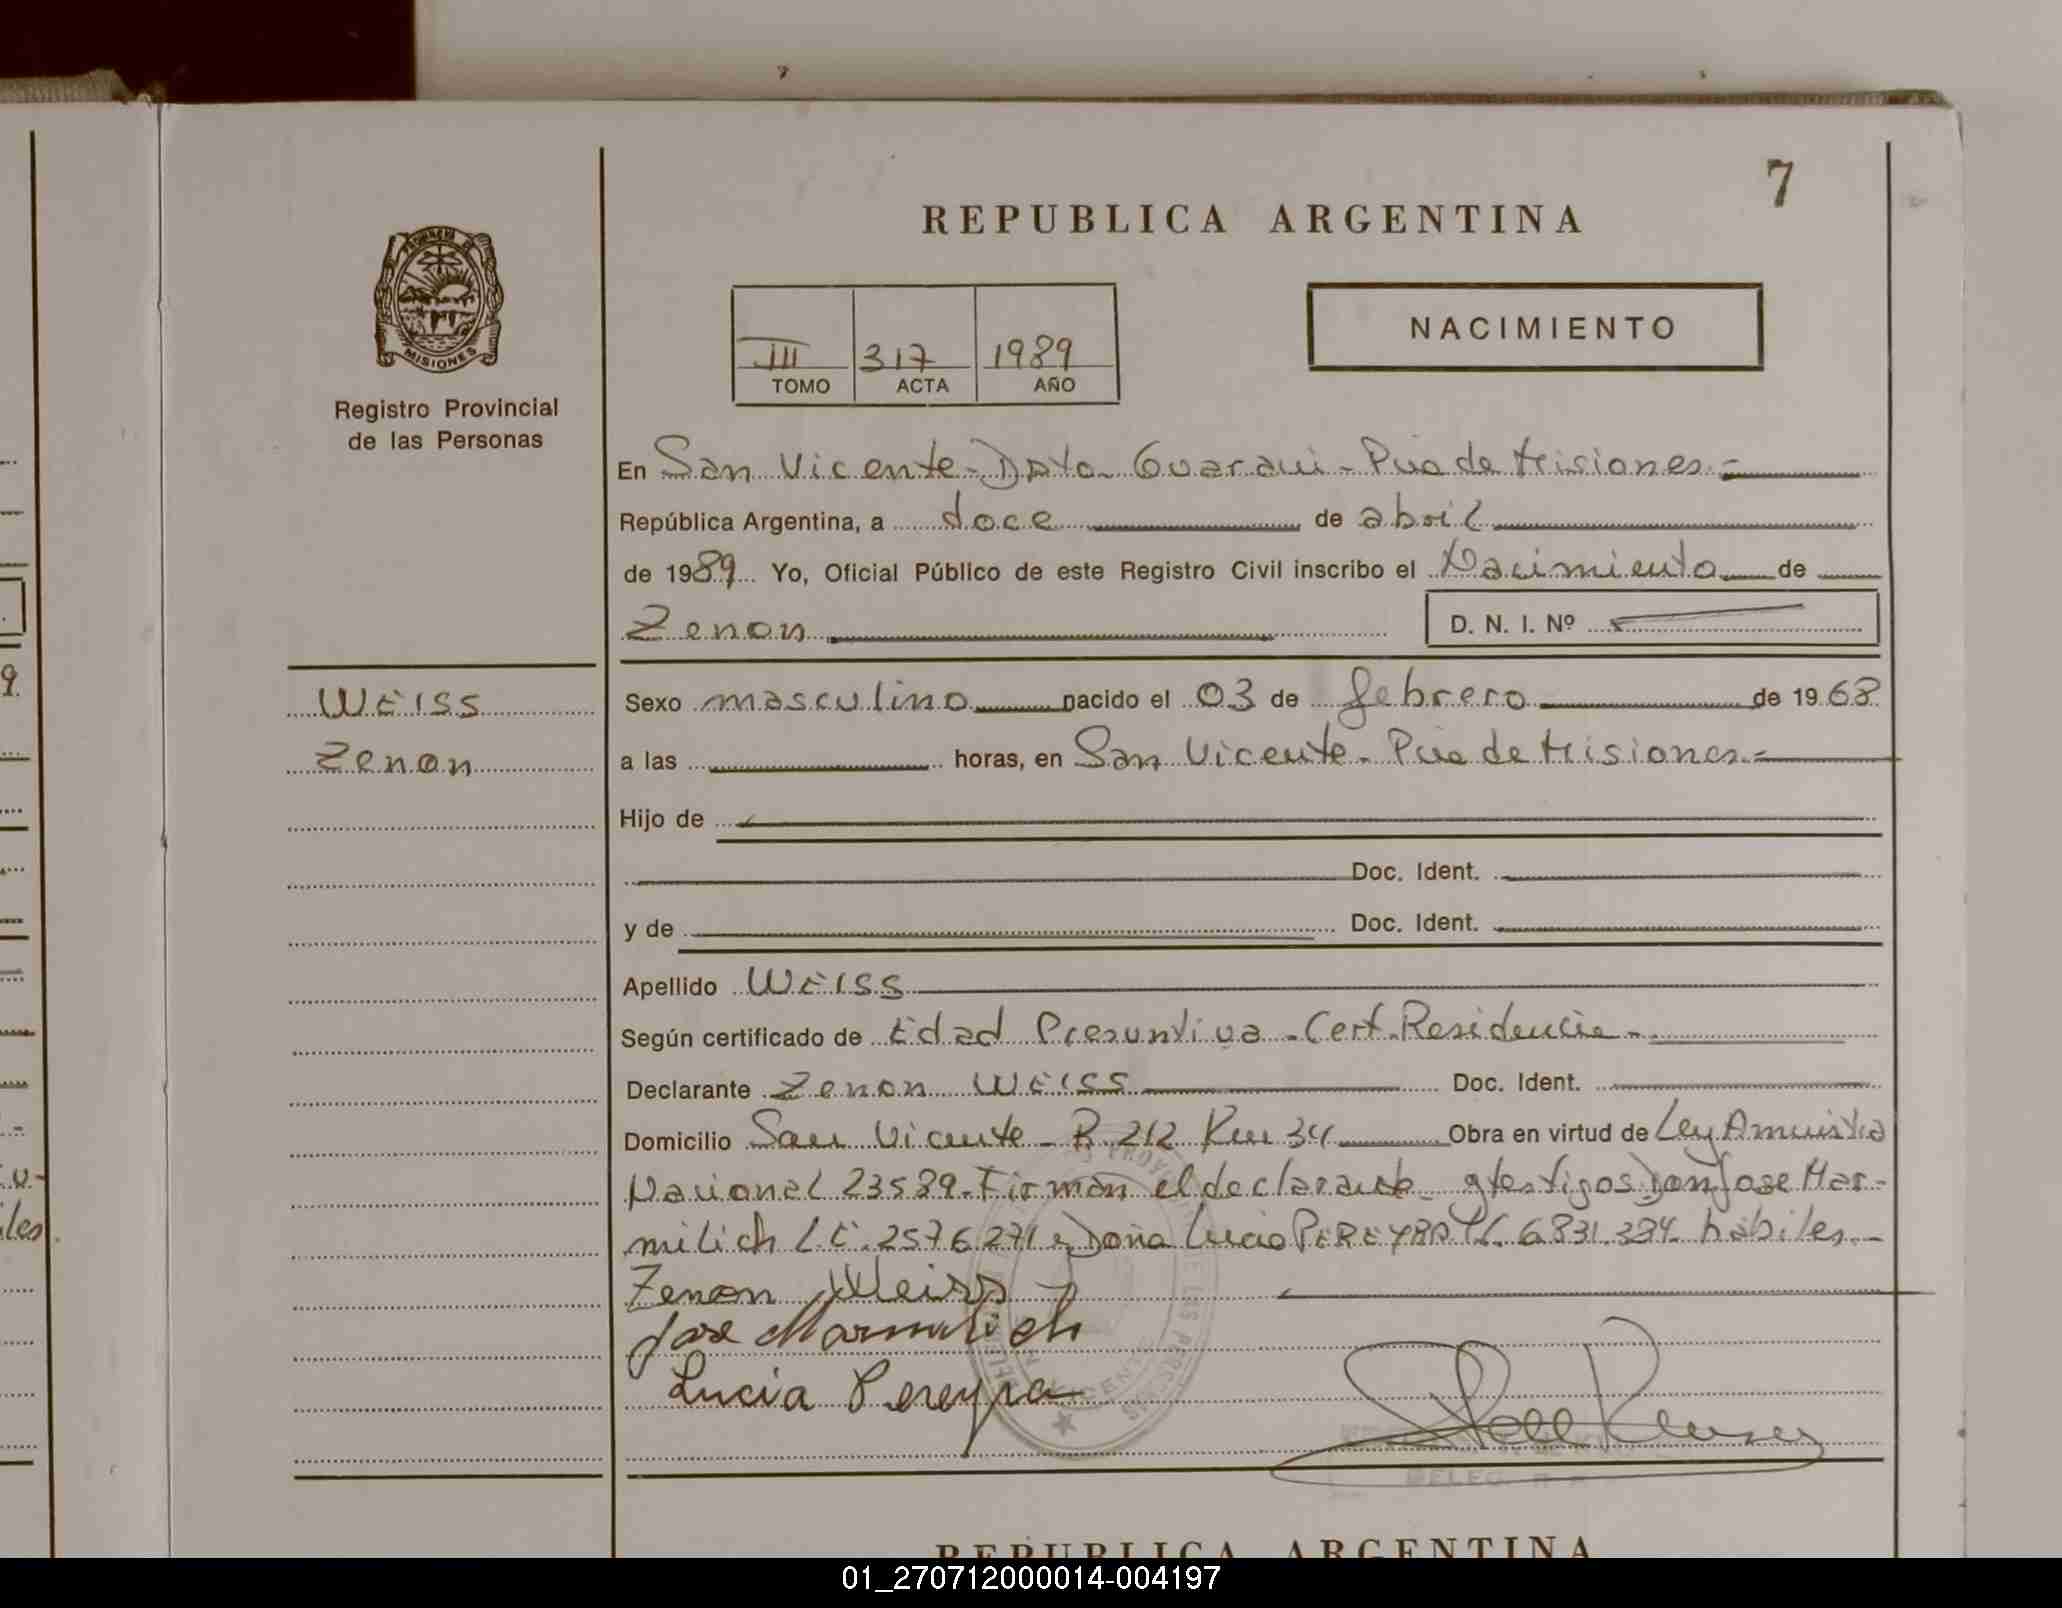 7
REPUBLICA ARGENTINA
NACIMIENTO
III 317 1989
TOMO ACTA AÑO
MISIONES
Registro Provincial
de las Personas
En San Vicente - Dpto Guarani - Pcia de Misiones -
República Argentina, a doce de abril
de 1989 Yo, Oficial Público de este Registro Civil inscribo el Nacimiento de
Zenon D. N. I. Nº
WEISS
Zenon
Sexo masculino nacido el 03 de febrero de 1968
a las horas, en San Vicente - Pcia de Misiones -
Hijo de
Doc. Ident.
y de Doc. Ident.
Apellido WEISS
Según certificado de Edad Presuntiva - Cert. Residencia -
Declarante Zenon WEISS Doc. Ident.
Domicilio San Vicente - R. 212 Km 34 Obra en virtud de Ley Amnistia
Nacional 23589. Firman el declarante y testigos Don Jose Mar-
milich L.E. 2576271 y Doña Lucia PEREYRA 6831.384 habiles -
Zenon Weiss
Jose Marmilich
Lucia Pereyra
REPUBLICA ARGENTINA
01_270712000014-004197